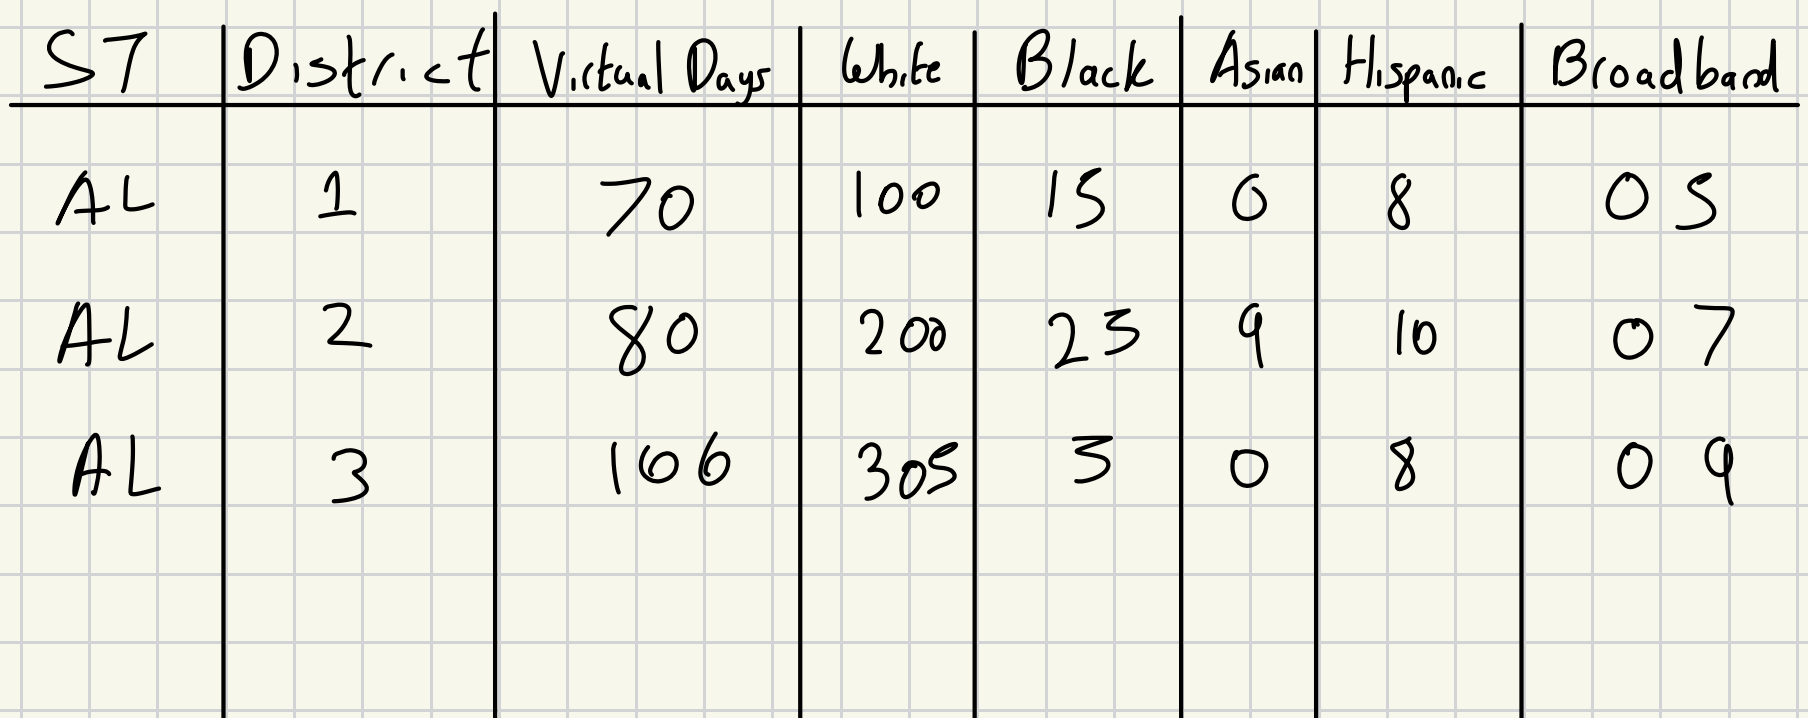 ST District Virtual Days White Black Asian Hispanic Broadband
AL 1 70 100 15 0 8 05
AL 2 80 200 23 9 10 07
AL 3 106 305 3 0 8 09